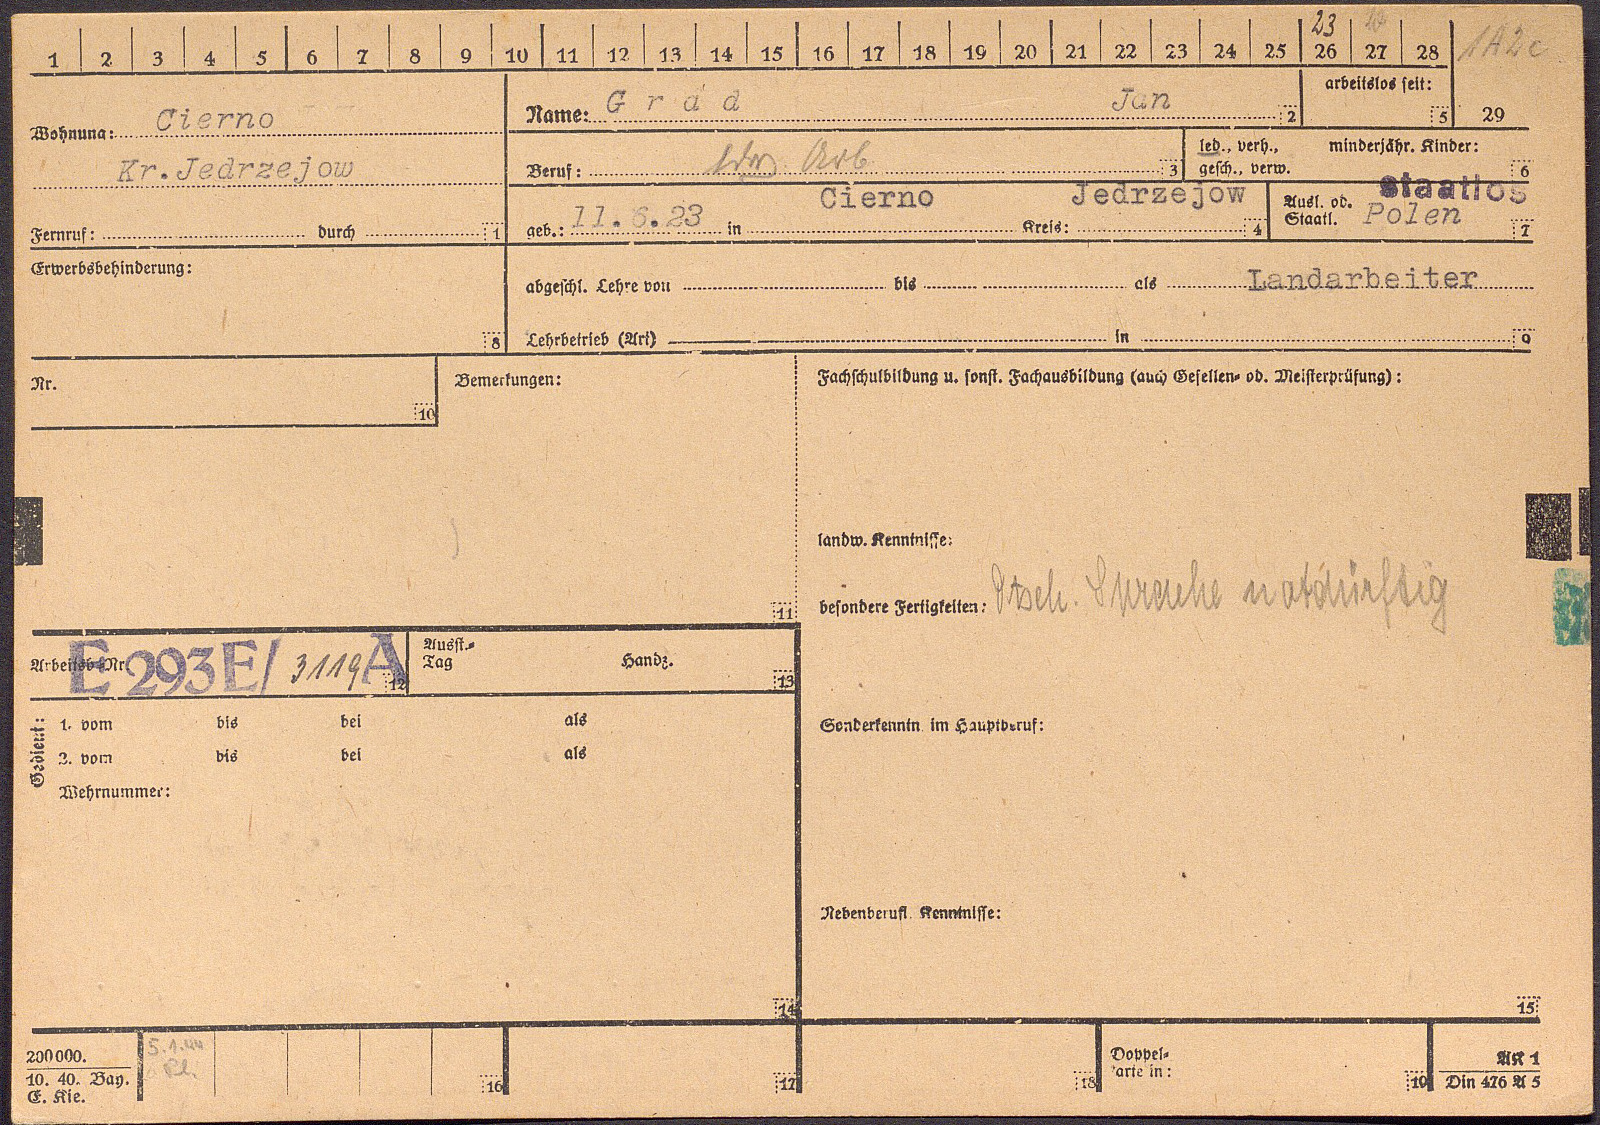 1 2 3 4 5 6 7 8 9 10 11 12 13 14 15 16 17 18 19 20 21 22 23 24 25 26 27 28
23
1A2c
Wohnung: Cierno
Kr.Jedrzejow
Fernruf: durch 1
Name: G r a d Jan 2
arbeitslos seit: 5
29
Beruf: ldw. Arb 3
led., verh.,
gesch., verw.
minderjähr. Kinder: 6
geb.: 11.6.23 in Cierno Kreis: Jedrzejow 4
Ausl. od.
Staatl. Polen 7
staatlos
Erwerbsbehinderung: 8
abgeschl. Lehre von bis als Landarbeiter
Lehrbetrieb (Art) in 9
Nr. 10
Bemerkungen: 11
Fachschulbildung u. sonst. Fachausbildung (auch Gesellen- od. Meisterprüfung):
landw. Kenntnisse:
besondere Fertigkeiten: Dtsch. Sprache notdürftig
Sonderkenntn. im Hauptberuf:
Nebenberufl. Kenntnisse:
15
Arbeitsb.-Nr. E 293E/ 3119 A 12
Ausst.-
Tag Handz. 13
Gedient:
1. vom bis bei als
2. vom bis bei als
Wehrnummer:
14
200000.
10. 40. Bay.
E. Kie.
5.1.44
16
17
18
Doppel-
karte in: 19
AK 1
Din 476 A 5